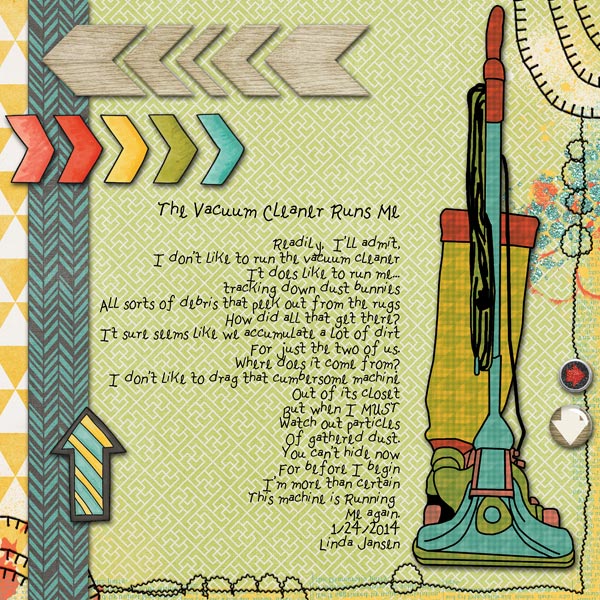 The Vacuum Cleaner Runs Me
Readily, I'll admit,
I don't like to run the vacuum cleaner
It does like to run me...
tracking down dust bunnies
All sorts of debris that peek out from the rugs
How did all that get there?
It sure seems like we accumulate a lot of dirt
For just the two of us.
Where does it come from?
I don't like to drag that cumbersome machine
Out of its closet
But when I MUST
Watch out particles
Of gathered dust.
You can't hide now
For before I begin
I'm more than certain
This machine is Running
Me again.
1/24/2014
Linda Jansen